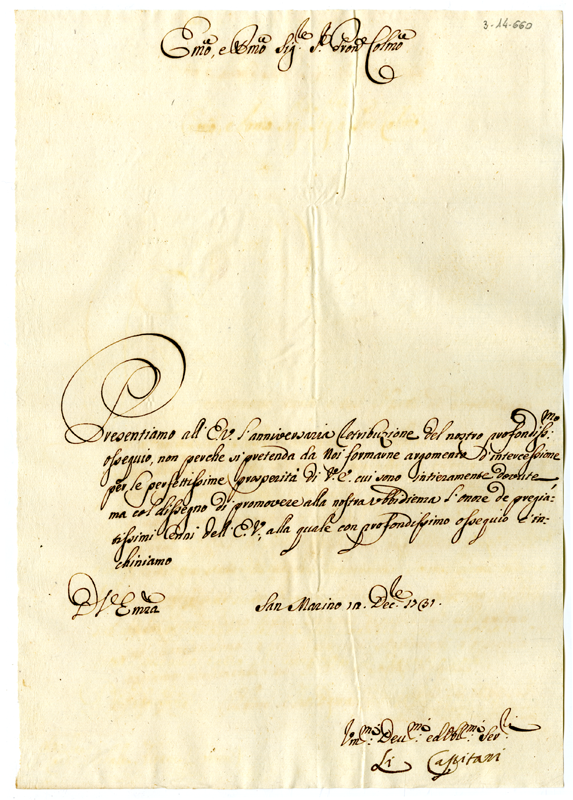 3-14-660
Emo, e Rmo Sig.le S.r Pron Colmo
Presentiamo all'E.V. l'anniversaria Cotribuzione del nostro profondiss.mo
ossequio, non perche si pretenda da Noi formarne argomento d'intercessione
per le perfettissime prosperità di V.E. cui sono intieramente dovute,
ma col dissegno di promovere alla nostra ubbidienza l'onore de pregia-
tissimi Cenni dell'E.V., alla quale con profondissimo ossequio c'in-
chiniamo
D V. Emza San Marino Dec. 1731.
Vm.mi Deu.mi ed Obb.mi Ser.
Li Capitani